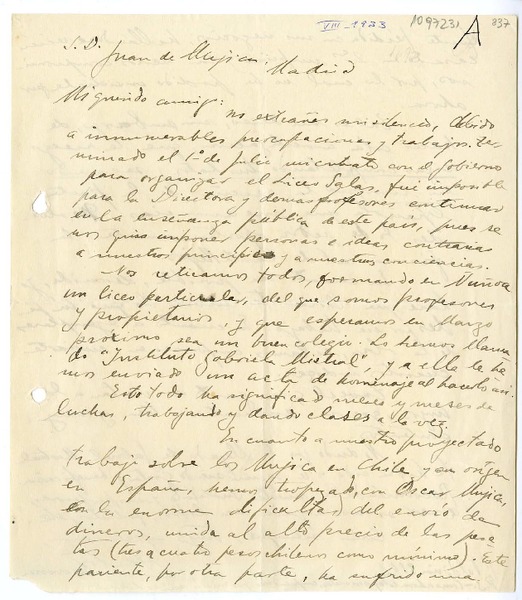 VIII - 1933
1097231
A
837
S. D. Juan de Mujica.
Madrid
Mi querido amigo:
no extrañes mi silencio, debido
a innumerables preocupaciones y trabajos. Ter-
minado el 1º de Julio mi contrato con el Gobierno
para organizar el Liceo Salas, fué imposible
para la Directora y demas profesores continuar
en la enseñanza pública de este país, pues se
nos quiso imponer personas e ideas contrarias
a nuestros principios y a nuestras conciencias.
Nos retiramos todos, formando en Nuñoa
un liceo particular, del que somos profesores
y propietarios y que esperamos en Marzo
próximo sea un buen colegio. Lo hemos llama
do "Instituto Gabriela Mistral", y a ella le he
mos enviado un acta de homenaje al hacerlo así.
Esto todo ha significado meses y meses de
luchas, trabajando y dando clases a la vez.
En cuanto a nuestro proyectado
trabajo sobre los Mujica en Chile y su origen
en España, hemos tropezado, con Oscar Mujica,
con la enorme dificultad del envío de
dineros, unida al alto precio de las pese
tas (tres a cuatro pesos chilenos como mínimo). Este
pariente, por otra parte, ha sufrido una